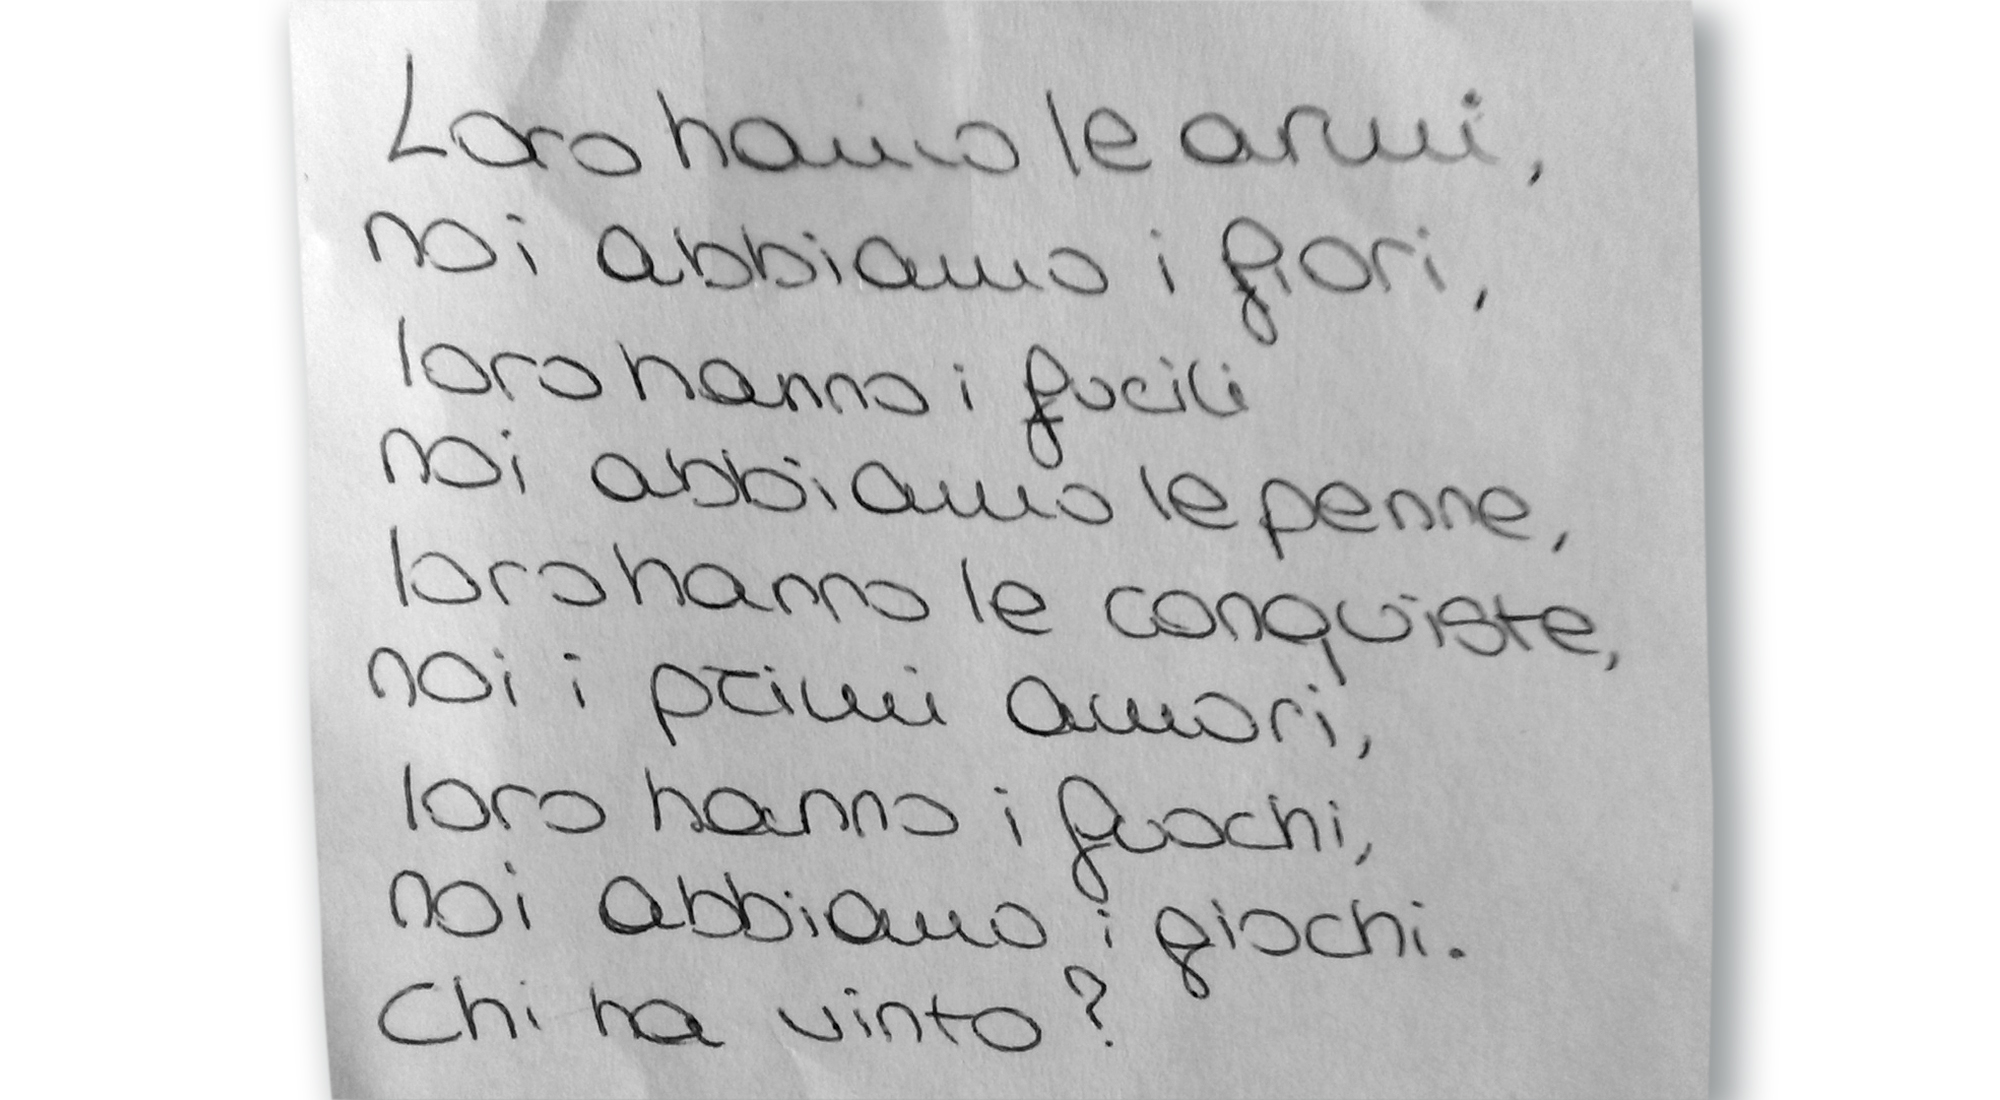 Loro hanno le armi,
noi abbiamo i fiori,
loro hanno i fucili
noi abbiamo le penne,
loro hanno le conquiste,
noi i primi amori,
loro hanno i fuochi,
noi abbiamo i giochi.
Chi ha vinto?